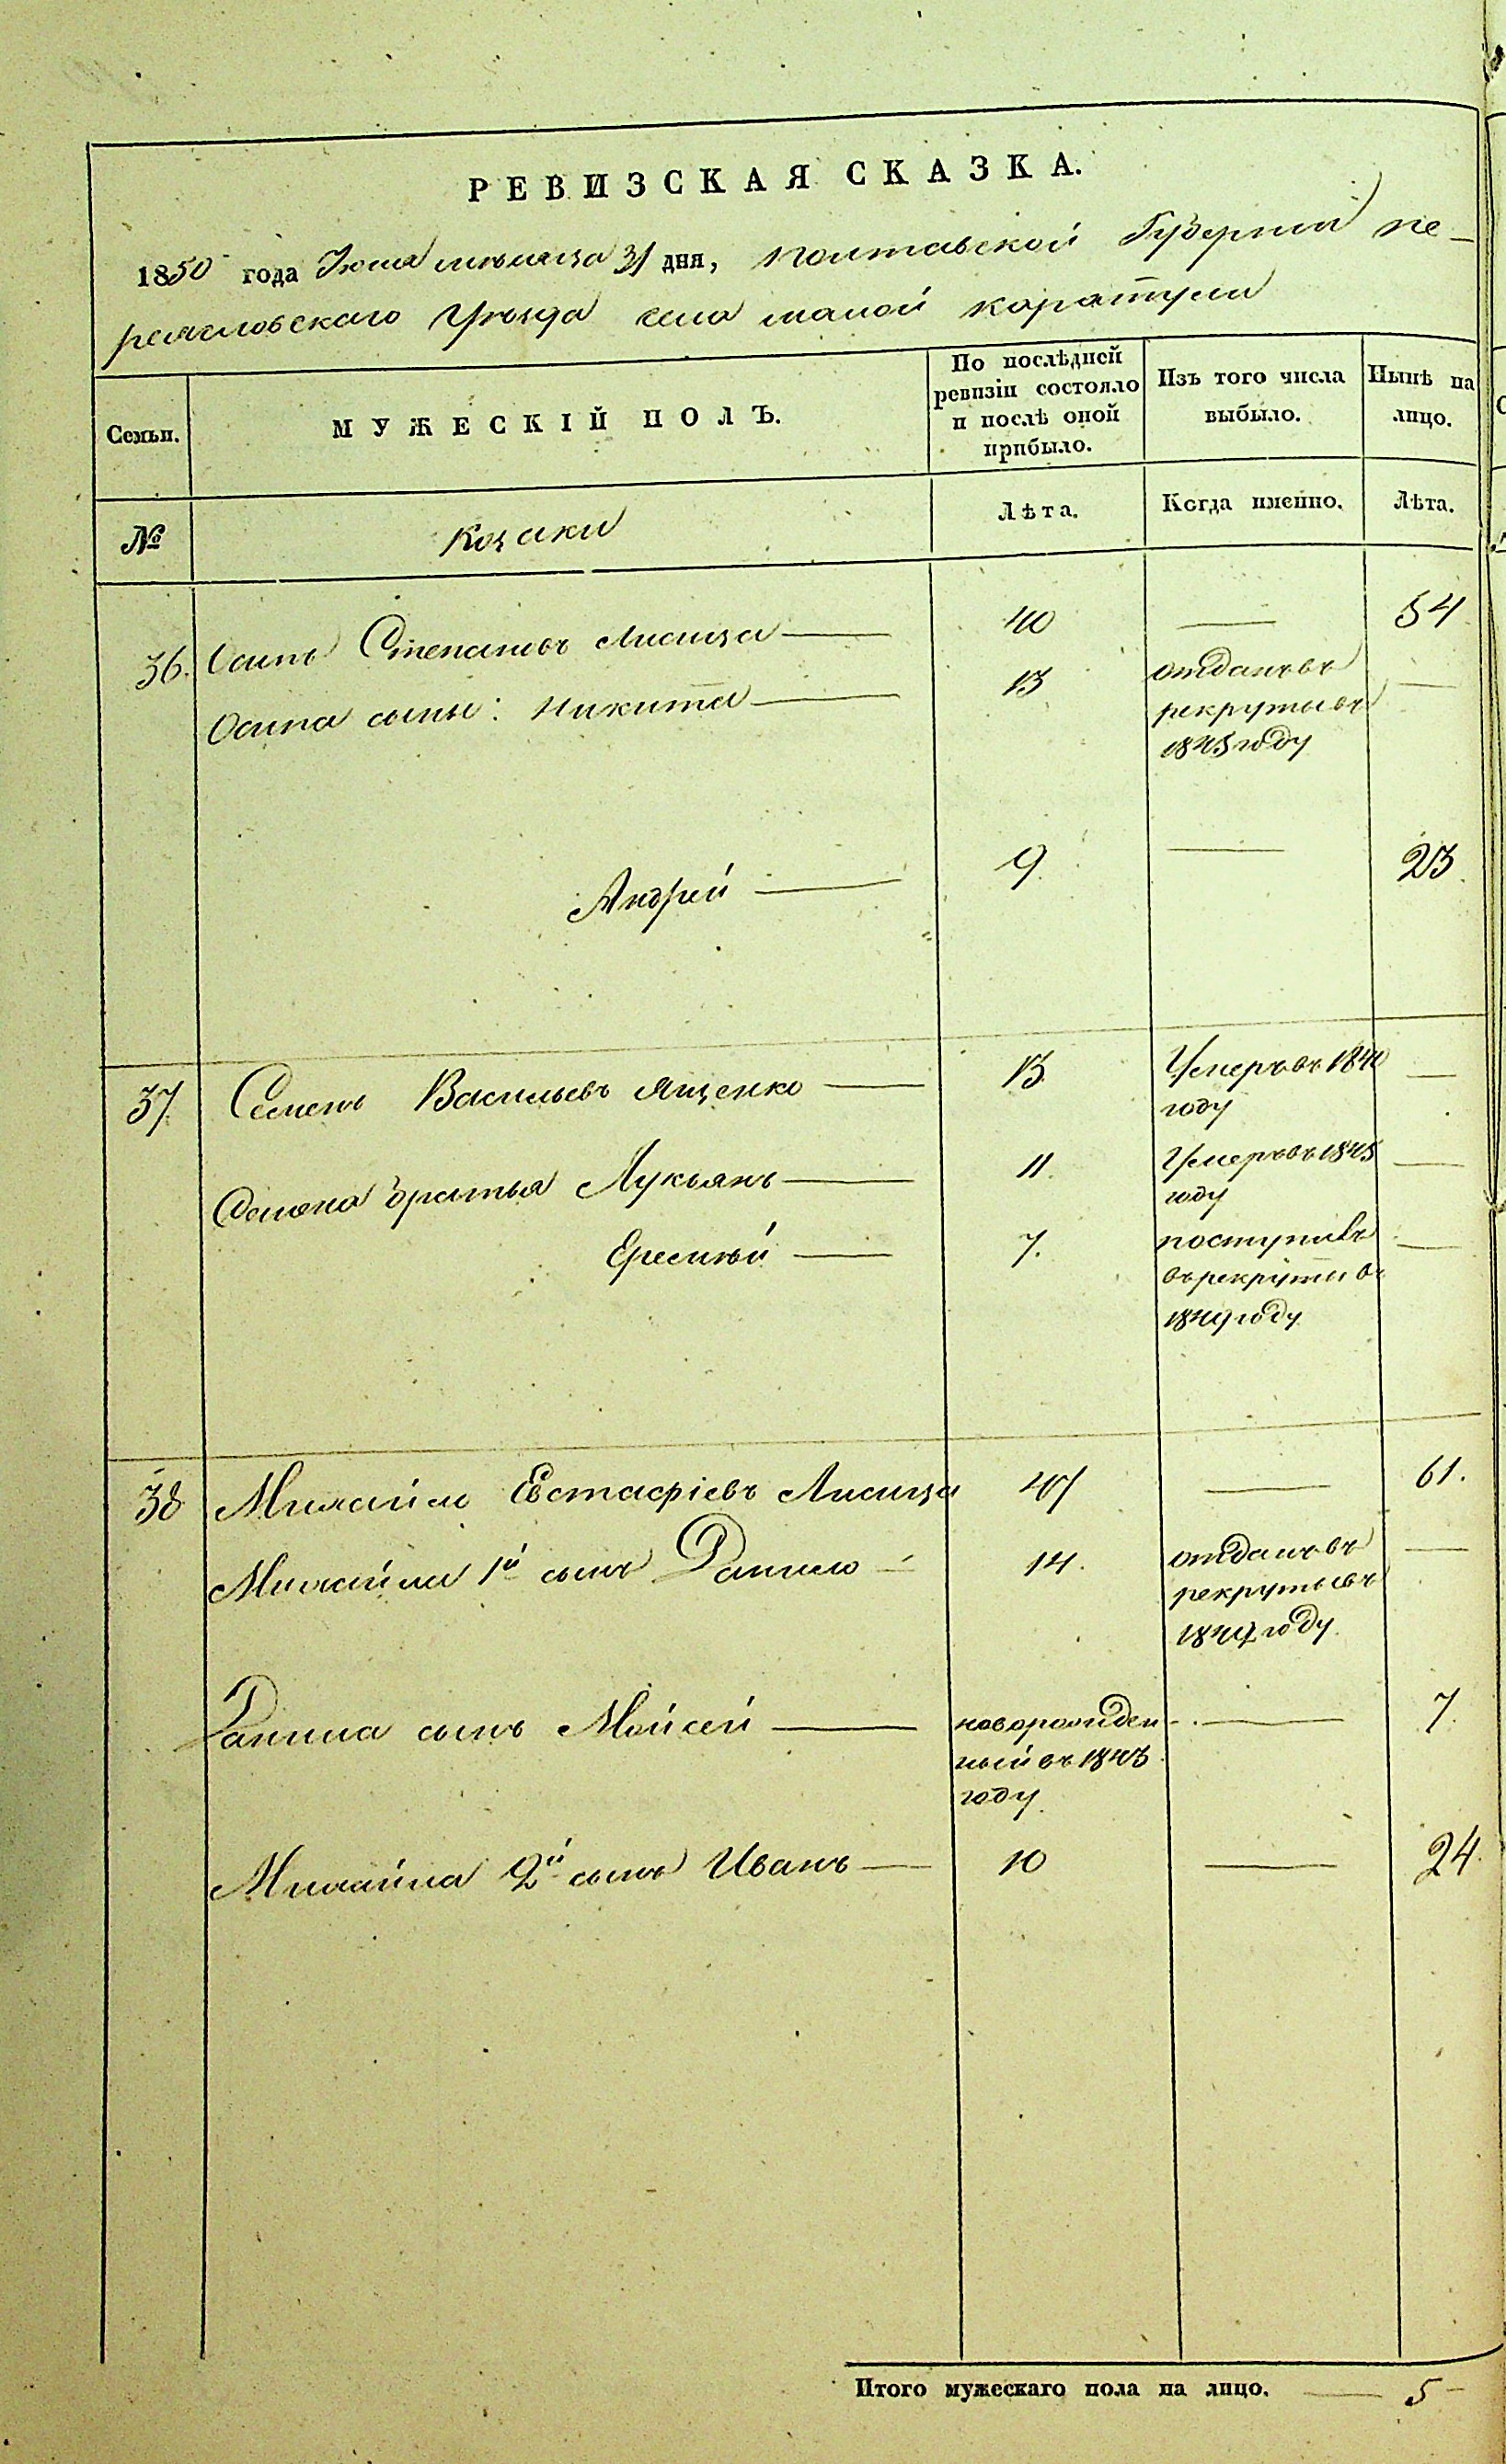 РЕВИЗСКАЯ СКАЗКА.
1850 года Июля месяца 31 дня, Полтавской Губернии Пе-
реяславскаго Уезда села малой каратули
Семьи.
МУЖЕСКІЙ ПОЛЪ.
По послѣдней
ревизіи состояло
и послѣ оной
прибыло.
Изъ того числа
выбыло.
Нынѣ на
лицо.
№
Козаки
Лѣта.
Когда именно.
Лѣта.
36. Осипъ Степановъ Лисица 40 54
Осипа сыны: Никита 13 отданъ въ
рекруты въ
1843 году
Андрей 9. 23
37. Семенъ Васильевъ Ященко 13 Умеръ въ 1840
году
Семена братья Лукьянъ 11. Умеръ въ 1845
году
Еремѣй 7. поступилъ
въ рекруты въ
1849 году
38 Михайло Евстафіевъ Лисица 47 61.
Михайла 1й сынъ Данило 14. отданъ въ
рекруты въ
1849 году
Данила сынъ Мойсей новорожден- 7.
ный въ 1843
году
Михайла 2й сынъ Иванъ 10 24.
Итого мужескаго пола на лицо. 5